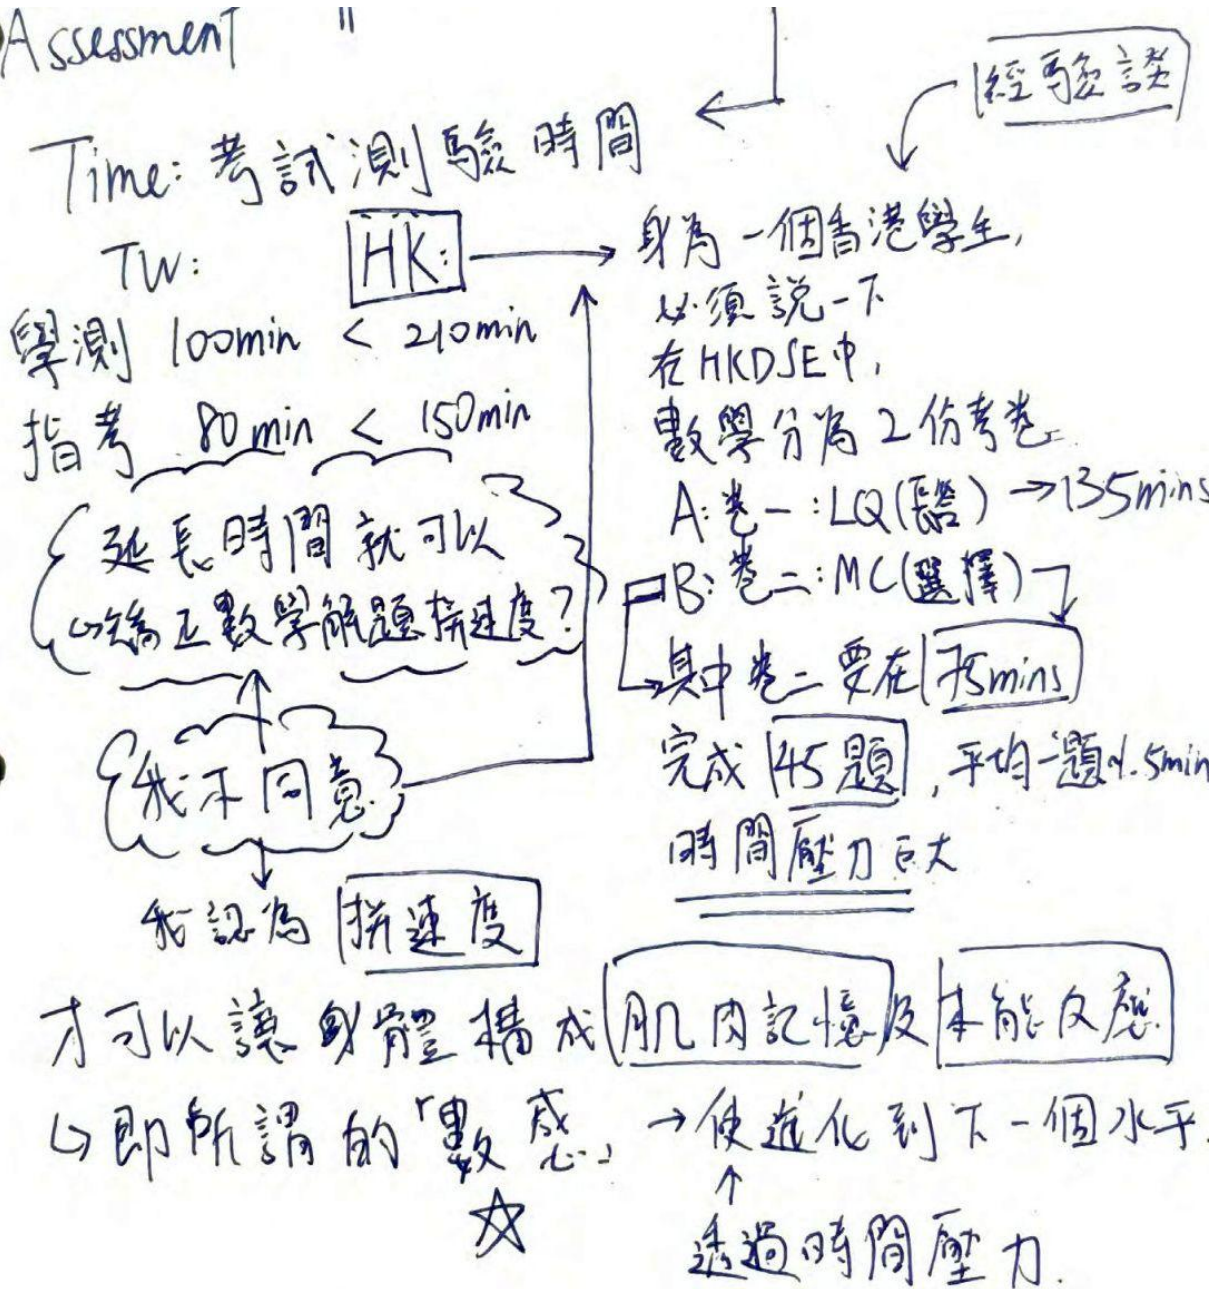 Assessment "
經驗談
Time: 考試測驗時間
TW:
HK:
學測 100min < 210min
指考 80min < 150min
延長時間就可以
矯正數學解題拼速度?
我不同意
我認為 拼速度
身為一個香港學生,
必須說一下
在HKDSE中,
數學分為2份考卷
A: 卷一: LQ(長答) → 135mins
B: 卷二: MC(選擇)
其中卷二要在 75mins
完成 45題, 平均一題 .5min
時間壓力巨大
才可以讓身體構成 肌肉記憶 及 本能反應
↳ 即所謂的「數感」 → 使進化到下一個水平.
☆
↑
透過時間壓力.